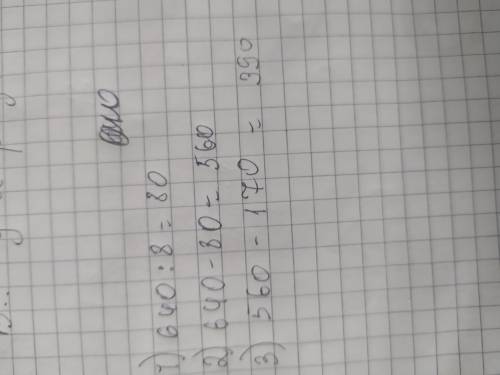 1) 640 : 8 = 80
2) 640 - 80 = 560
3) 560 - 170 = 390